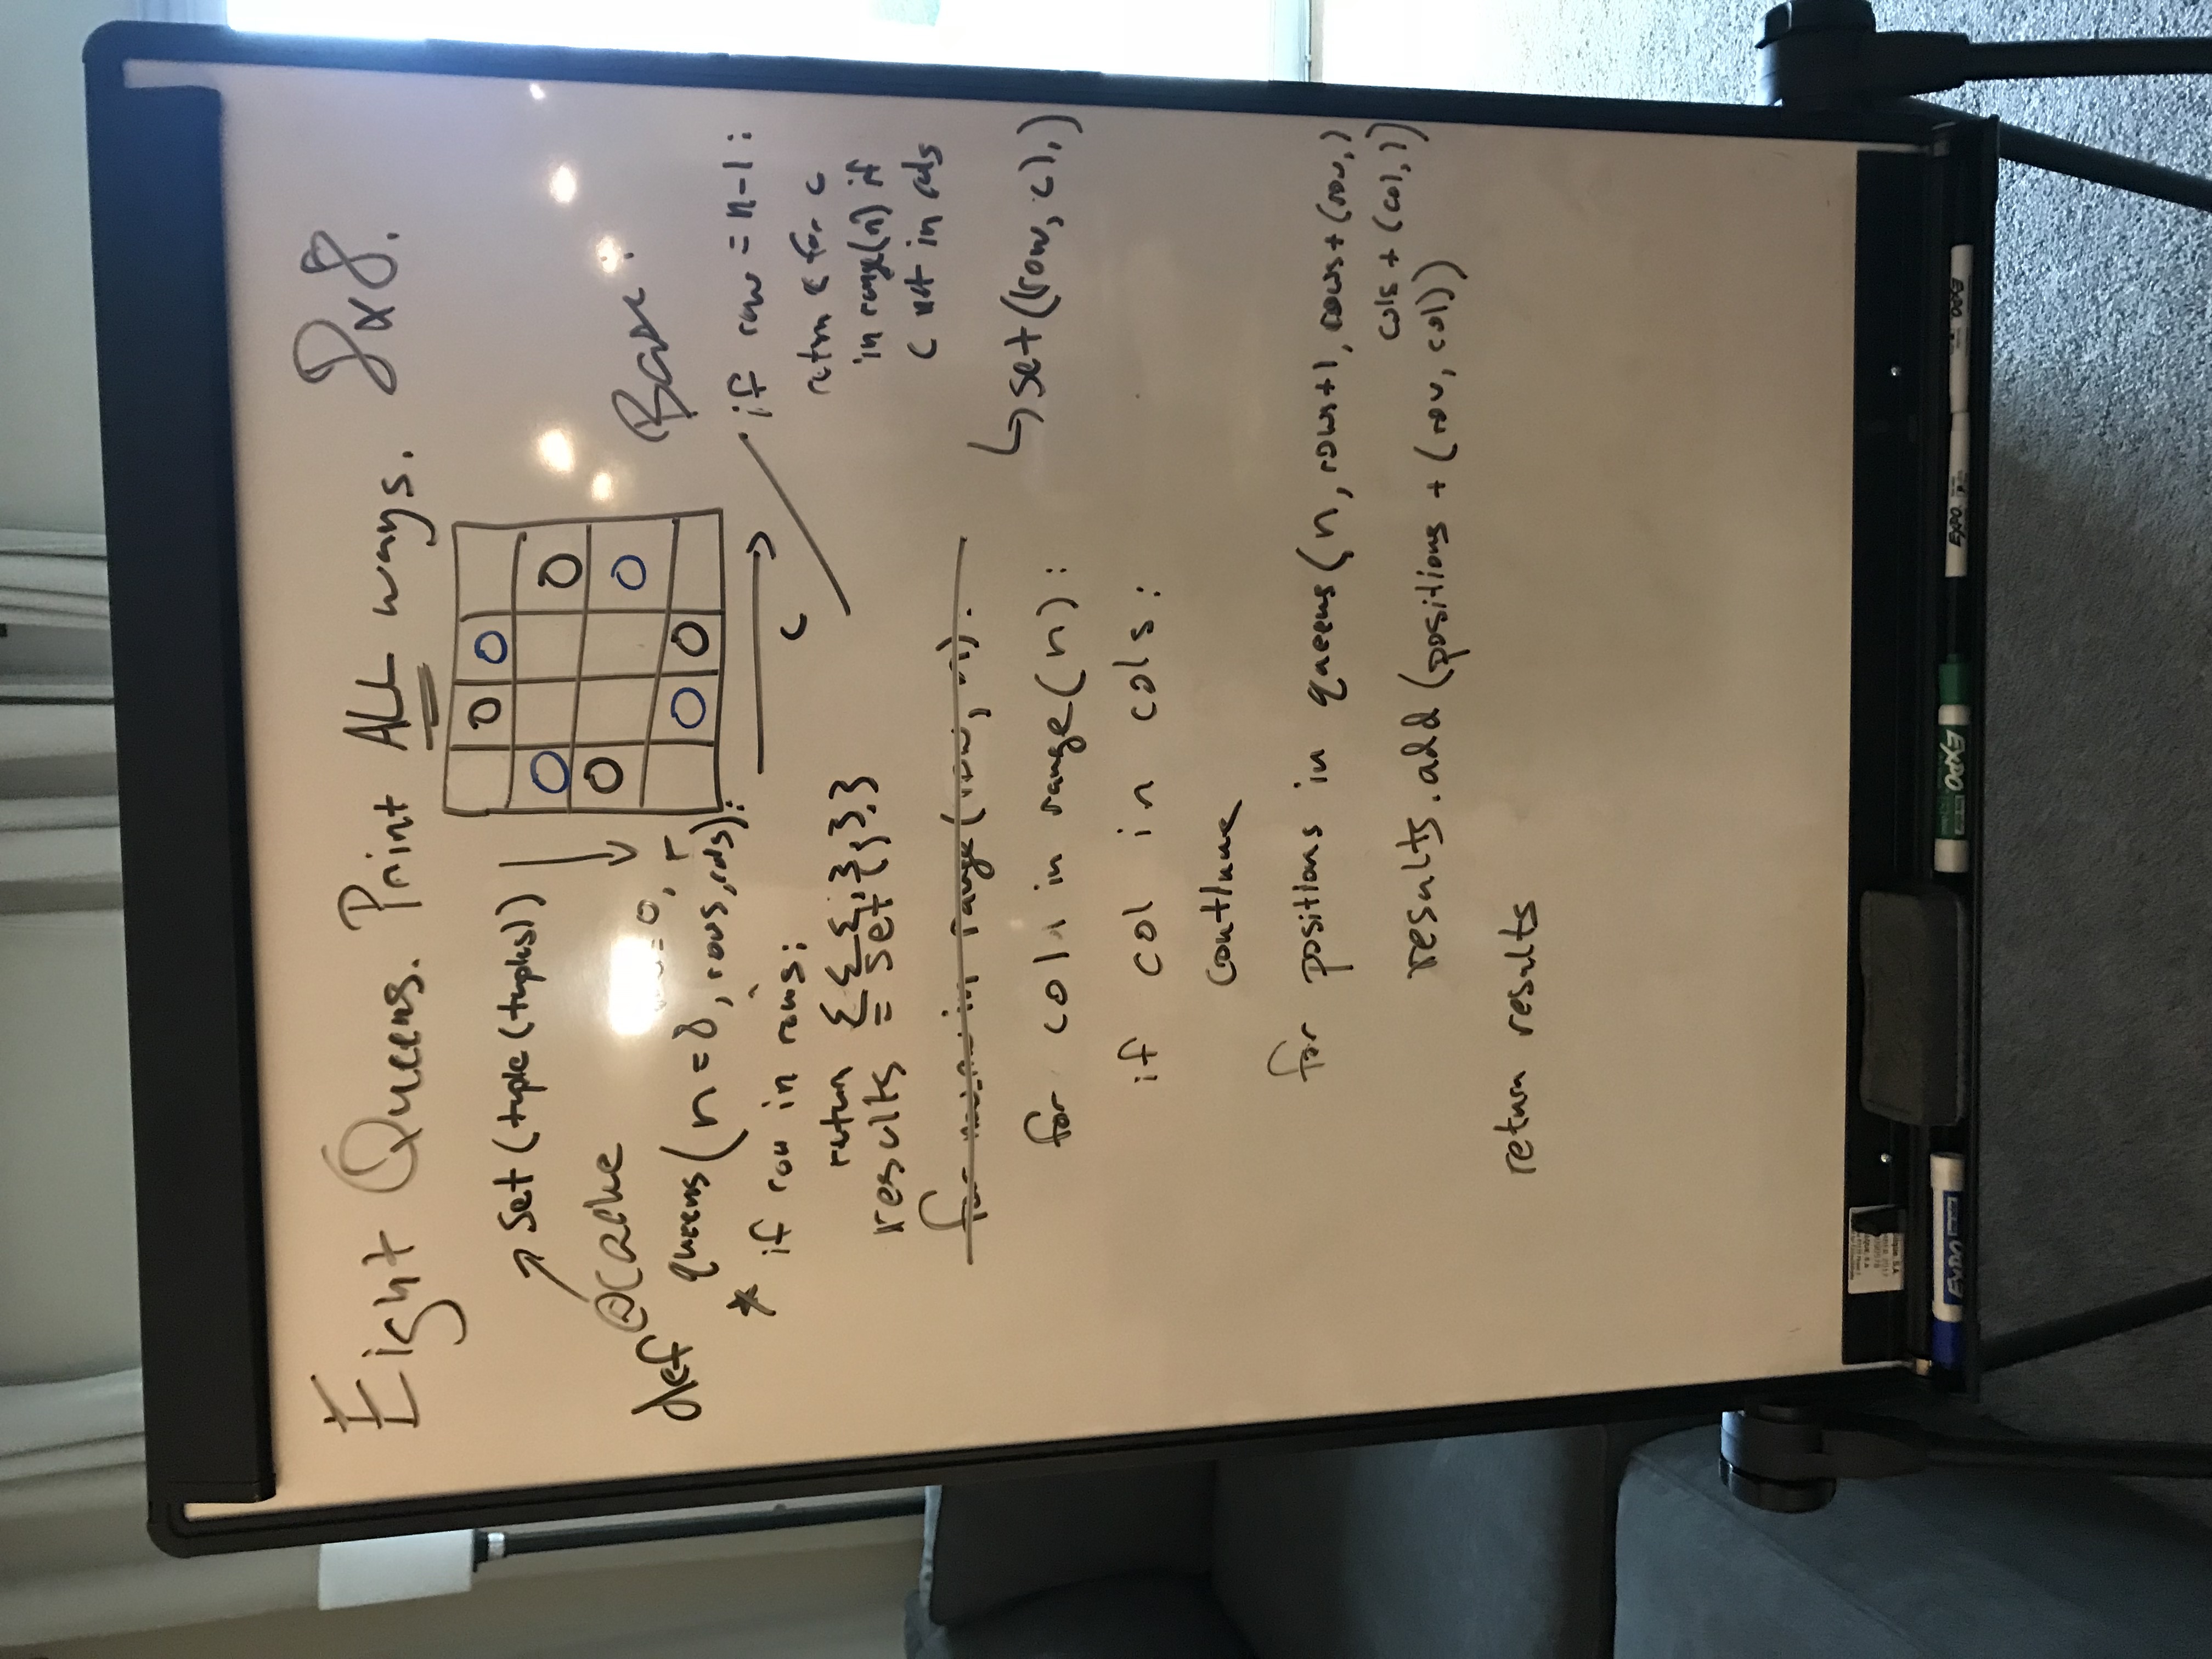 Eight Queens. Print ALL ways. 8x8.
set (tuple (tuples))
@cache
def queens (n = 8, row = 0, rows, cols):
r
c
* if row in rows:
return {{{,},},}
results = set ()
for in range (row, n):
for col in range (n):
if col in cols:
continue
for positions in queens (n, rows+1, rows + (row,)
cols + (col,))
results.add (positions + (row, col))
return results
Base:
if row = n-1:
return c for c
in range(n) if
c not in cols
↳ set ((row, c),)
EXPO
EXPO
EXPO
EXPO